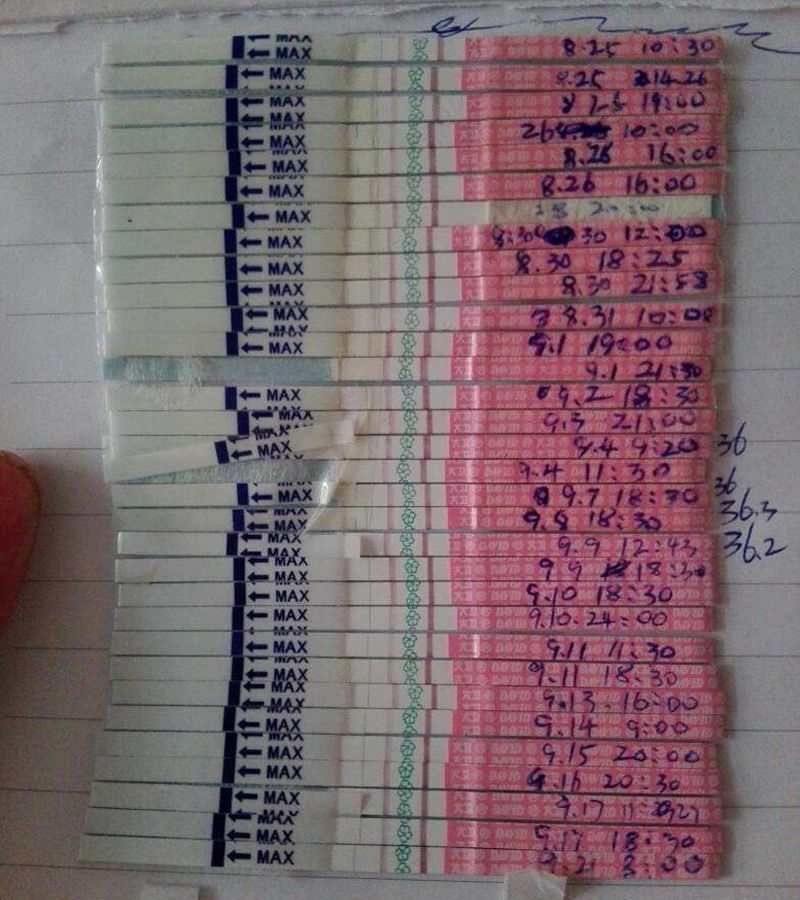 MAX 8.25 10:30
MAX 8.25 14.26
MAX 19:00
MAX 26 10:00
MAX 8.26 16:00
MAX 8.26 16:00
MAX
MAX 30 12:00
MAX 8.30 18:25
MAX 8.30 21:53
MAX 8.31 10:00
MAX 9.1 19:00
9.1 21:30
MAX 9.2 18:30
MAX 9.3 21:00
MAX 9.4 9:20 36
9.4 11:30
MAX 9.7 18:30 36
MAX 9.8 18:30 36.3
MAX 9.9 12:43 36.2
MAX 9.9 18:30
MAX 9.10 18:30
MAX 9.10.24:00
MAX 9.11 11:30
MAX 9.11 18:30
MAX 9.13.16:00
MAX 9.14 9:00
MAX 9.15 20:00
MAX 9.16 20:30
MAX 9.17
MAX 9.17 18:30
MAX 9.21 8:00
大卫 DAVID